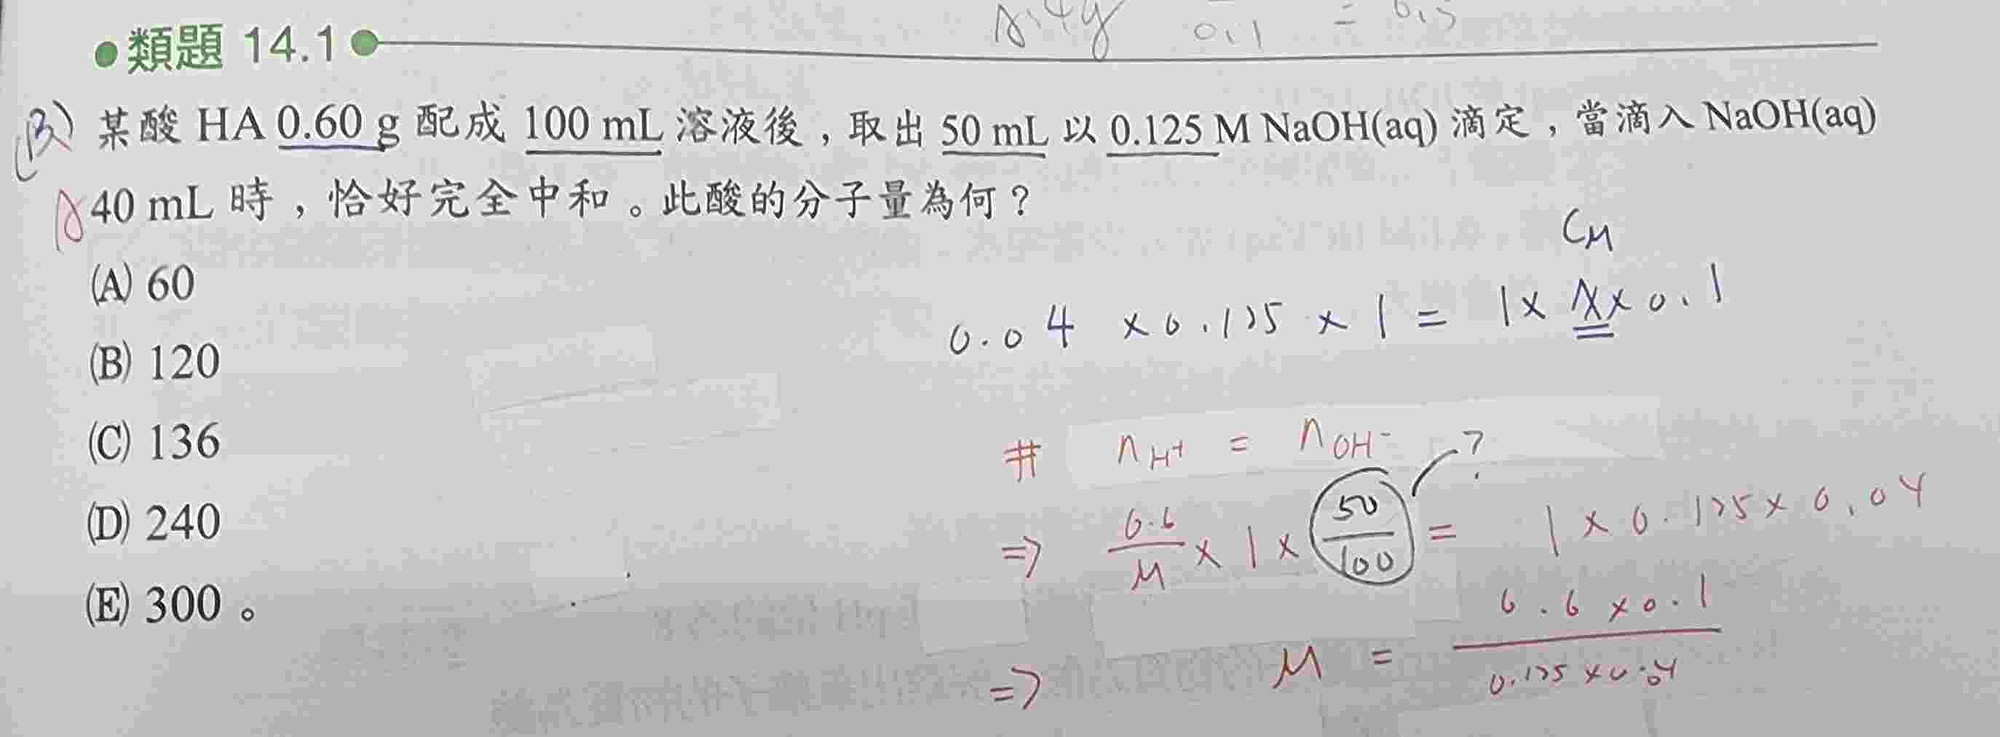 類題 14.1
(B) 某酸 HA 0.60 g 配成 100 mL 溶液後，取出 50 mL 以 0.125 M NaOH(aq) 滴定，當滴入 NaOH(aq)
40 mL 時，恰好完全中和。此酸的分子量為何？
(A) 60
(B) 120
(C) 136
(D) 240
(E) 300。
CM
0.04 × 0.125 × 1 = 1 × X × 0.1
# nH+ = nOH-
?
⇒ 0.6/M × 1 × 50/100 = 1 × 0.125 × 0.04
⇒ M = 0.6 × 0.1 / 0.125 × 0.04